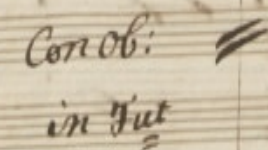 Con ob:
in Tut